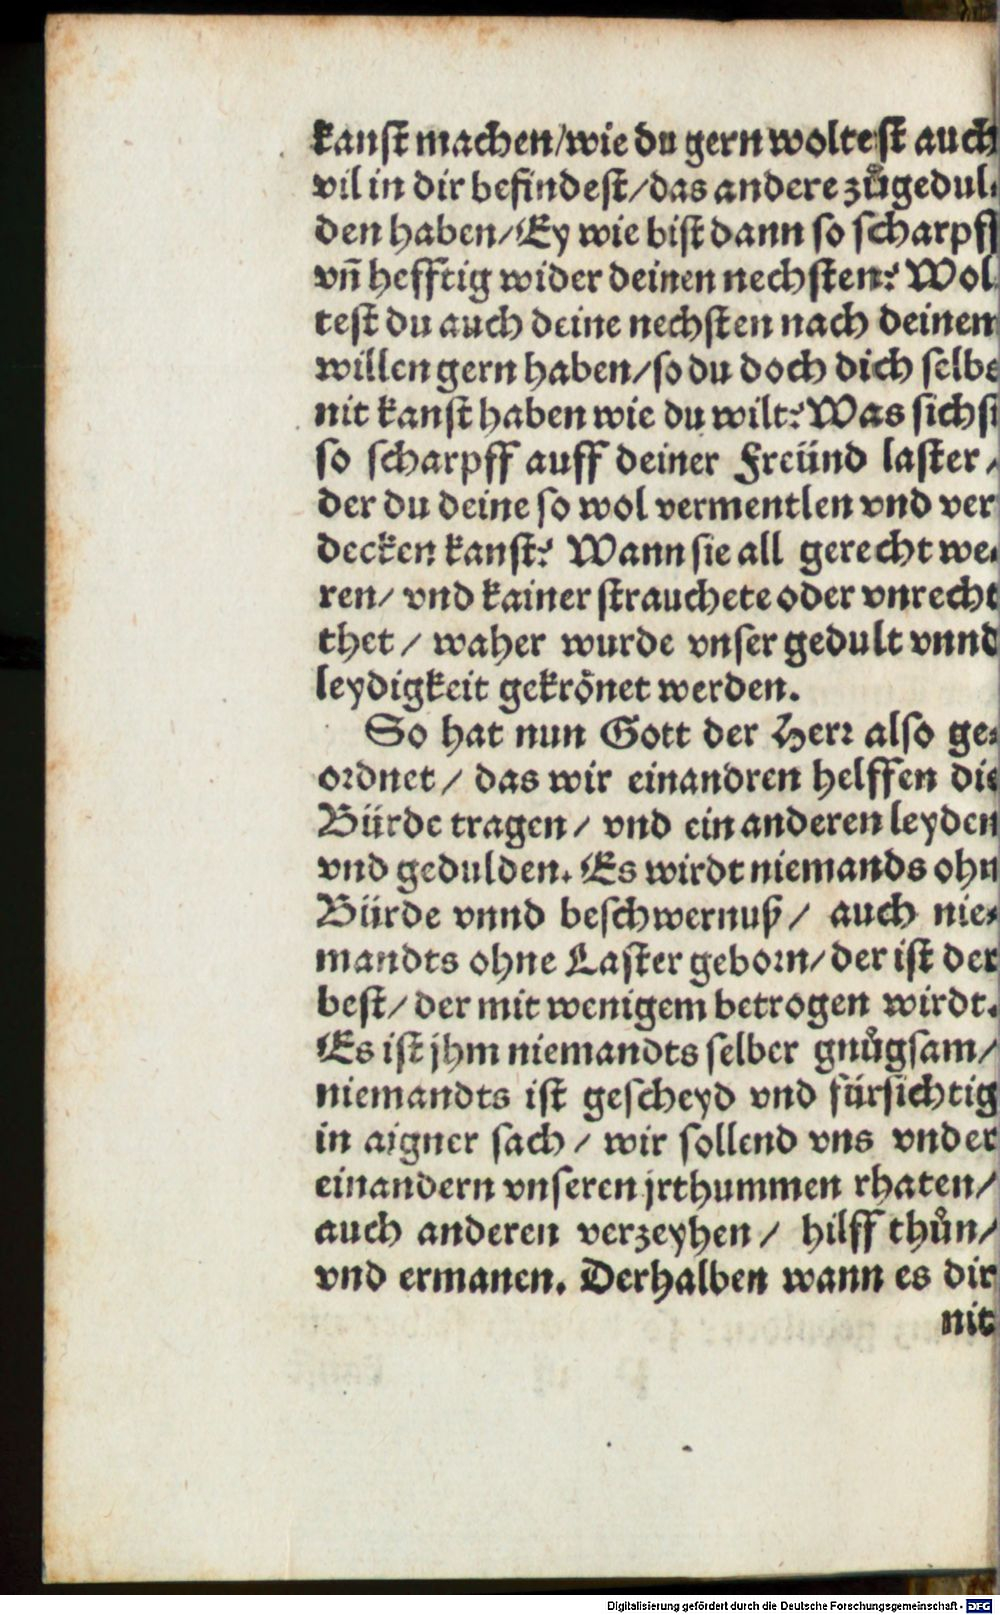 kanst machen/wie du gern woltest auch
vil in dir befindest/das andere zůgedul-
den haben/Ey wie bist dann so scharpff
vñ hefftig wider deinen nechsten? Wol
test du auch deine nechsten nach deinem
willen gern haben/so du doch dich selbs
nit kanst haben wie du wilt? Was sichst
so scharpff auff deiner Freünd laster/
der du deine so wol vermentlen vnd ver
decken kanst? Wann sie all gerecht we-
ren/ vnd kainer strauchete oder vnrecht
thet/ waher wurde vnser gedult vnnd
leydigkeit gekrönet werden.
So hat nun Gott der Herr also ge-
ordnet/ das wir einandren helffen die
Bürde tragen/ vnd ein anderen leyden
vnd gedulden. Es wirdt niemands ohn
Bürde vnnd beschwernuß/ auch nie-
mandts ohne Laster geborn/der ist der
best/der mit wenigem betrogen wirdt.
Es ist jhm niemandts selber gnůgsam/
niemandts ist gescheyd vnd fürsichtig
in aigner sach/ wir sollend vns vnder
einandern vnseren jrthummen rhaten/
auch anderen verzeyhen/ hilff thůn/
vnd ermanen. Derhalben wann es dir
nit
Digitalisierung gefördert durch die Deutsche Forschungsgemeinschaft - DFG